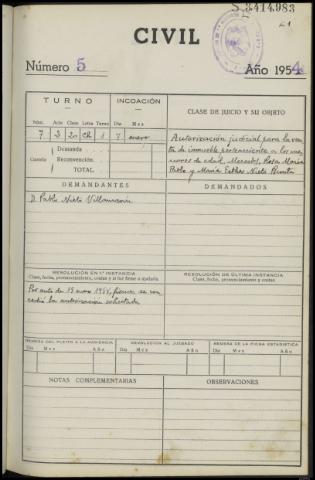 S.3414.983
21
CIVIL
Número 5 Año 1954
TURNO INCOACIÓN CLASE DE JUICIO Y SU OBJETO
Núm. Acto Clase Letra Turno Día Mes
7 3 20 Ch 1 7 enero
Autorización judicial para la ven-
ta de inmueble perteneciente a los me-
nores de edad, Mercedes, Rosa María
Pablo y María Esther Nieto
Cuantía Demanda
Reconvención
TOTAL
DEMANDANTES DEMANDADOS
D. Pablo Nieto Villanueva
RESOLUCIÓN EN 1ª INSTANCIA RESOLUCIÓN DE ÚLTIMA INSTANCIA
Clase, fecha, pronunciamiento, costas y si fue firme o apelada Clase, fecha, pronunciamiento y costas
Por auto de 15 enero 1954, firme, se con-
cedió la autorización solicitada
REMESA DEL PLEITO A LA AUDIENCIA DEVOLUCIÓN AL JUZGADO REMESA DE LA FICHA ESTADÍSTICA
Día Mes Año Día Mes Año Día Mes Año
NOTAS COMPLEMENTARIAS OBSERVACIONES